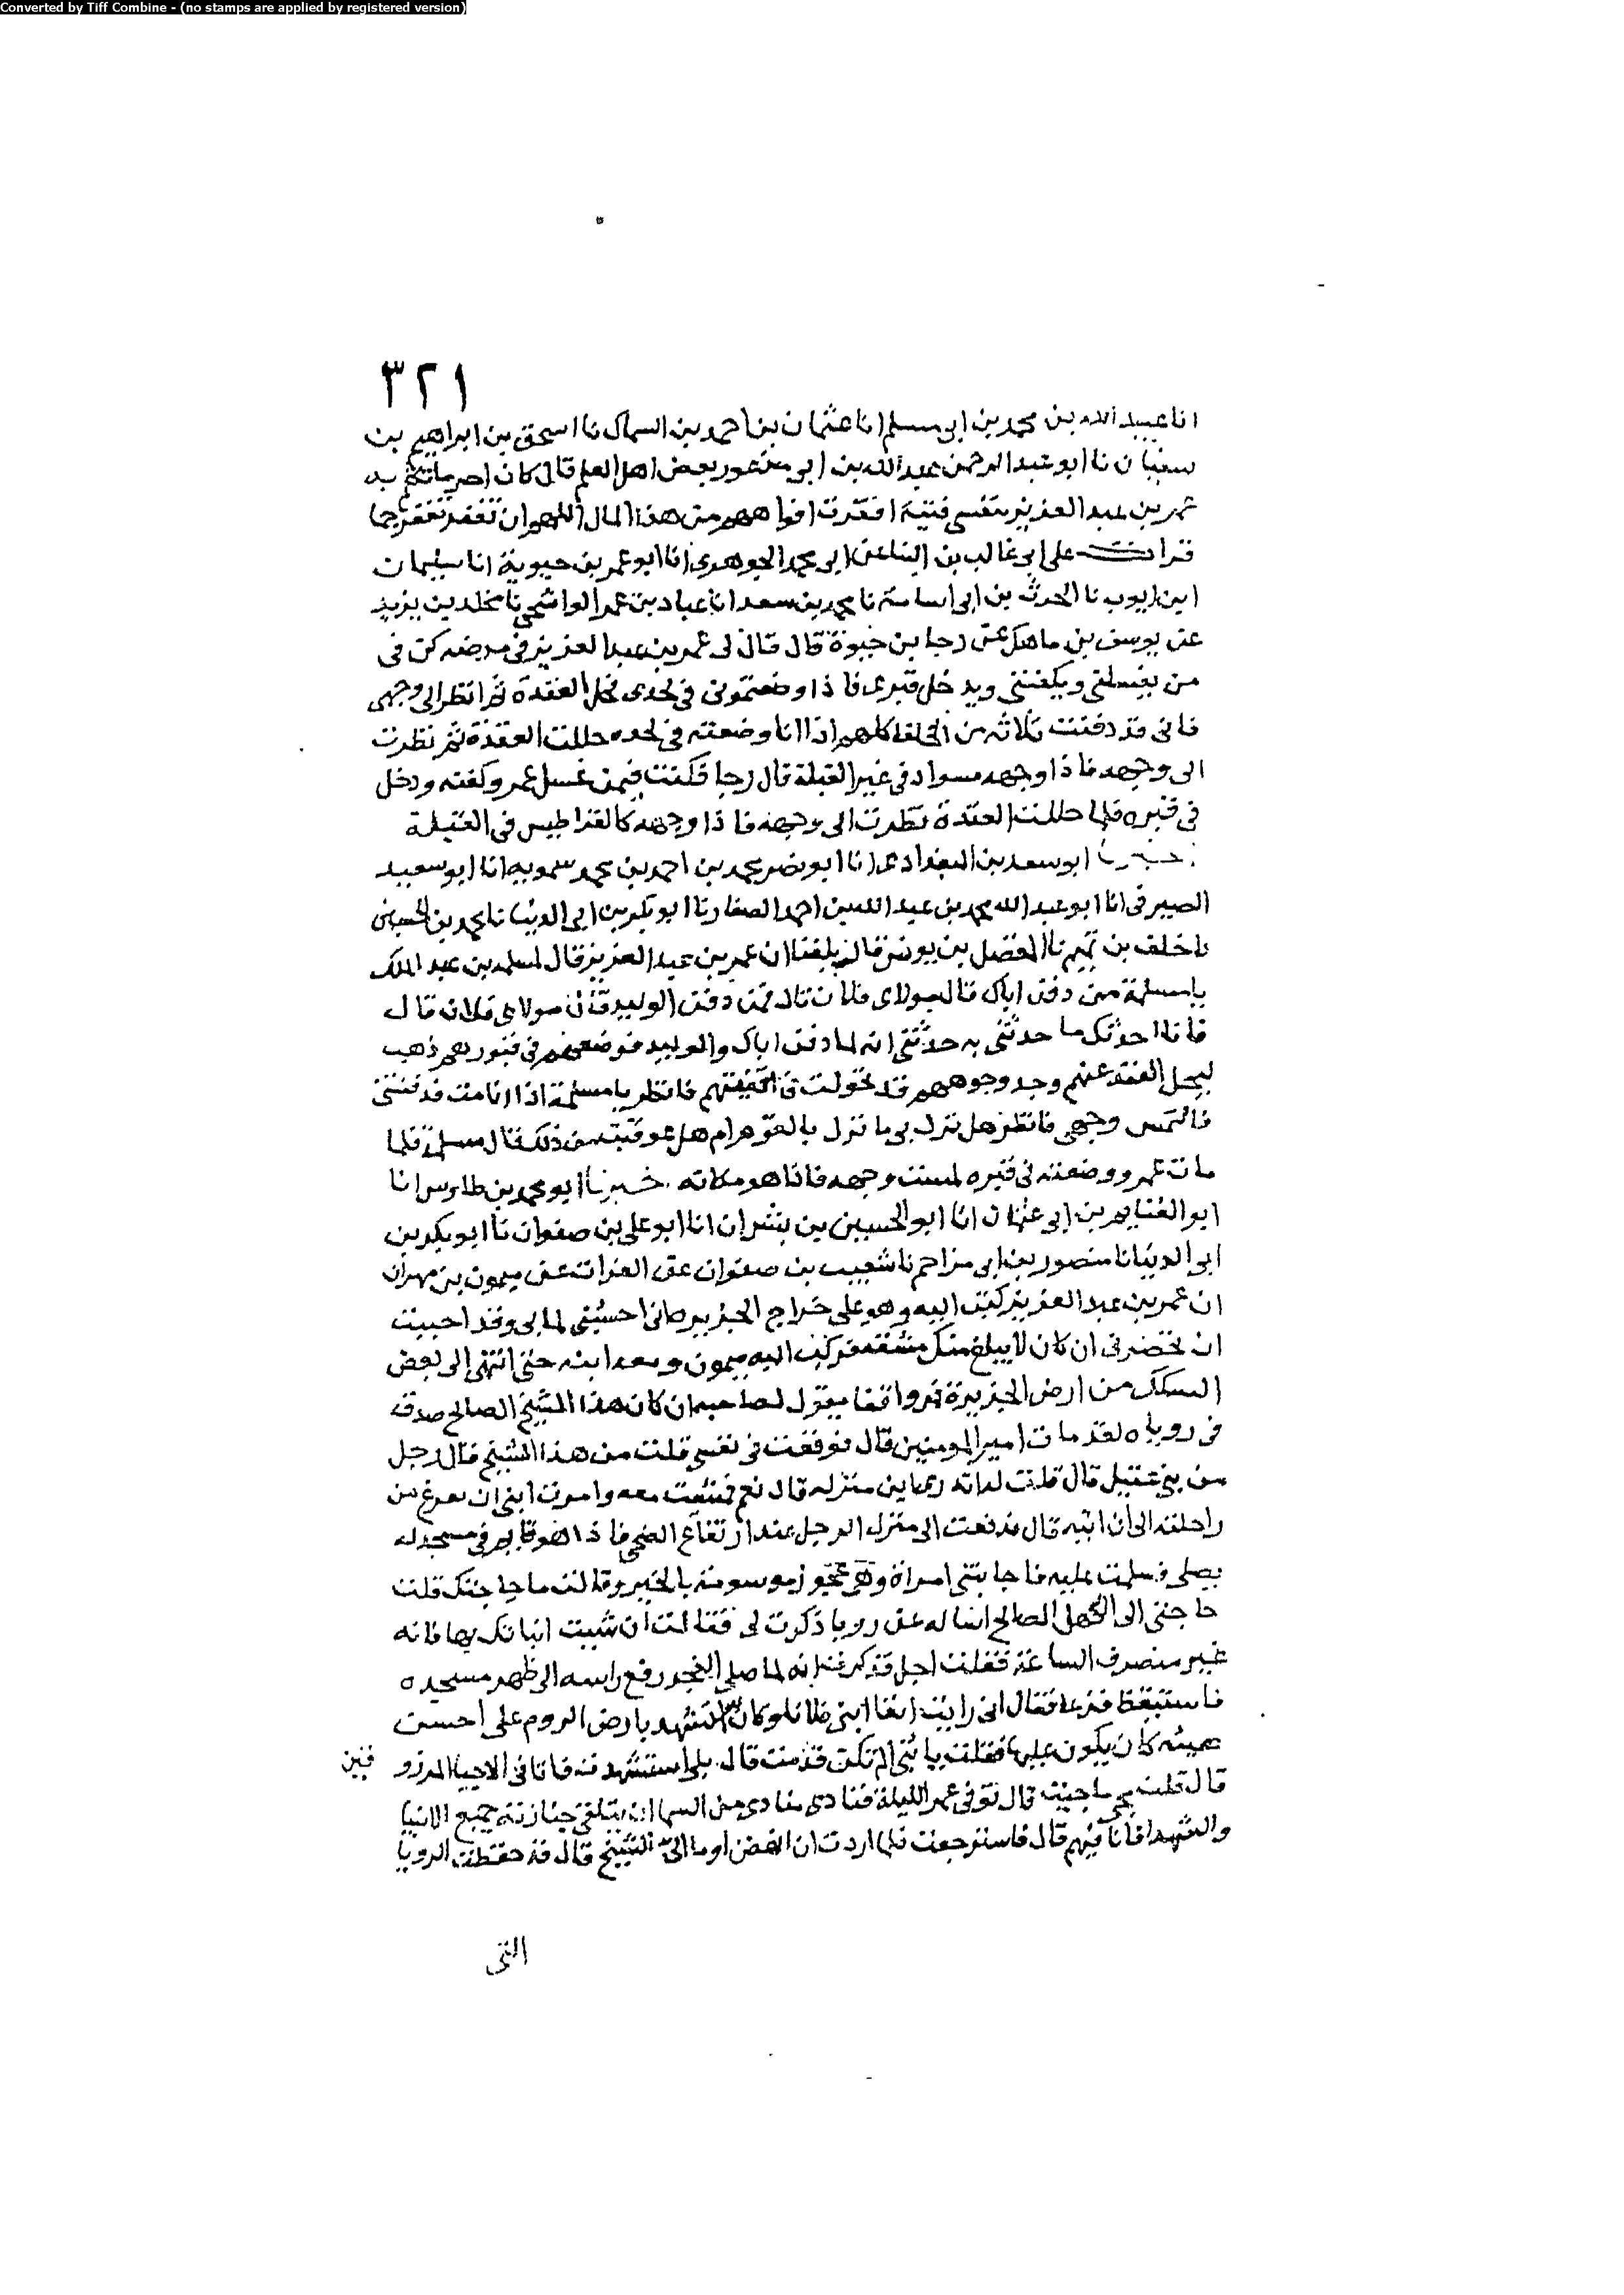 Converted by Tiff Combine - (no stamps are applied by registered version)
٣٢١
انا عبيد الله بن محمد بن ابى مسلم انا عثمان بن احمد بن السماك نا اسحق بن ابراهيم بن
سفيان نا ابو عبد الرحمن عبد الله بن ابى منصور بعض اهل العلم قال كان اخر ما تكلم به
عمر بن عبد العزيز بنفسى فتية افقرت افواههم من هذا المال اللهم ان تغفر تغفر جما
قرات على ابى غالب بن البنا عن ابى محمد الجوهرى انا ابو عمر بن حيوية انا سليمان
ابن ايوب نا الحرث بن ابى اسامة نا محمد بن سعد انا عباد بن عمر الواشحى نا مخلد بن يزيد
عن يوسف بن ماهك عن رجا بن حيوة قال قال لى عمر بن عبد العزيز فى مرضه كن فى
من يغسلنى ويكفننى ويدخل قبرى فاذا وضعتمونى فى لحدى فحل العقدة ثم انظر الى وجهى
فانى قد دفنت ثلاثة من الخلفا كلهم اذا انا وضعته فى لحده حللت العقدة ثم نظرت
الى وجهه فاذا وجهه مسوادا فى غير القبلة قال رجا فكنت فيمن غسل عمر وكفنه ودخل
فى قبره فلما حللت العقدة نظرت الى وجهه فاذا وجهه كالقراطيس فى القبلة
ابو سعد بن البغدادى انا ابو نصر محمد بن احمد بن محمد سمويه انا ابو سعيد
الصيرفى انا ابو عبد الله محمد بن عبد الله بن احمد الصفار نا ابو بكر بن ابى الدنيا نا محمد بن الحسين
نا خلف بن تميم نا المفضل بن يونس قال بلغنا ان عمر بن عبد العزيز قال لمسلمة بن عبد الملك
يا مسلمة من دفن اباك قال مولاى فلان قال فمن دفن الوليد قال مولاى فلان قال
فانا احدثك ما حدثنى به حدثنى انه لما دفن اباك والوليد فوضعهم فى قبورهم ذهب
ليحل العقد عنهم وجد وجوههم قد تحولت فى اقفيتهم فانظر يا مسلمة اذا انا مت فدفنتنى
فالتمس وجهى فانظر هل نزل بى ما نزل بالقوم ام هل عوفيت من ذلك قال مسلمة فلما
مات عمر ووضعته فى قبره لمست وجهه فاذا هو مكانه خبرنا ابو محمد بن طاوس انا
ابو الغنايم بن ابى عثمان انا ابو الحسين بن بشران انا ابو على بن صفوان نا ابو بكر بن
ابى الدنيا نا منصور بن ابى مزاحم نا شعيب بن صفوان عن الفرات عن ميمون بن مهران
ان عمر بن عبد العزيز كتب اليه وهو على خراج الجزيره انى احسبنى لما بى وقد احببت
ان تحضرنى ان كان لا يبلغ منك مشقة فركب اليه ميمون ومعه ابنه حتى انتهى الى بعض
السكك من ارض الجزيرة فمر واقفا يقول لصاحبه ان كان هذا الشيخ الصالح صدق
فى روياه لقد مات امير المومنين قال فوقفت فى نفسى قلت من هذا الشيخ قال رجل
من بنى عقيل قال قلت لداته اين منزله قال نعم فمشيت معه وامرت ابنى ان يفرغ من
راحلته الى ان اتيه قال فدفعت الى منزل الرجل عند ارتفاع الضحى فاذا هو قايم فى مسجد له
يصلى فسلمت عليه فاجابتنى امراة وهى عجوز موسومة بالخير وقالت ما حاجتك قلت
حاجتى الى الكهل الصالح اساله عن رويا ذكرت لى فقالت ان شيت انباتك بها فانه
غير منصرف الساعة فقلت اجل قد كرت انه لما صلى الفجر رفع راسه الى ظهر مسجده
فاستيقظ فزعا فقال انى رايت انفا ابنى فلانا وكان استشهد بارض الروم على احسن
هيئه كان يكون عليها فقلت يا بنى الم تكن قد مت قال بلى استشهدت فانا فى الاحيا المرزوقين
قال قلت فما جيت قال توفى عمر الليلة فنادى منادى من السما ان يتلقى جنازته جميع الانبيا
والشهدا فانا فيهم قال فاسترجعت فلما اردت ان انهض اوما الى الشيخ قال قد حفظت الرويا
التى